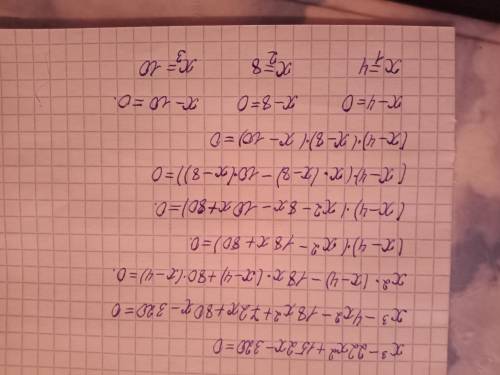 x³-22x²+152x-320=0
x³-4x²-18x²+72x+80x-320=0
x²·(x-4)-18x·(x-4)+80·(x-4)=0.
(x-4)·(x²-18x+80)=0
(x-4)·(x²-8x-10x+80)=0.
(x-4)·(x·(x-8)-10·(x-8))=0
(x-4)·(x-8)·(x-10)=0
x-4=0 x-8=0 x-10=0.
x₁=4 x₂=8 x₃=10